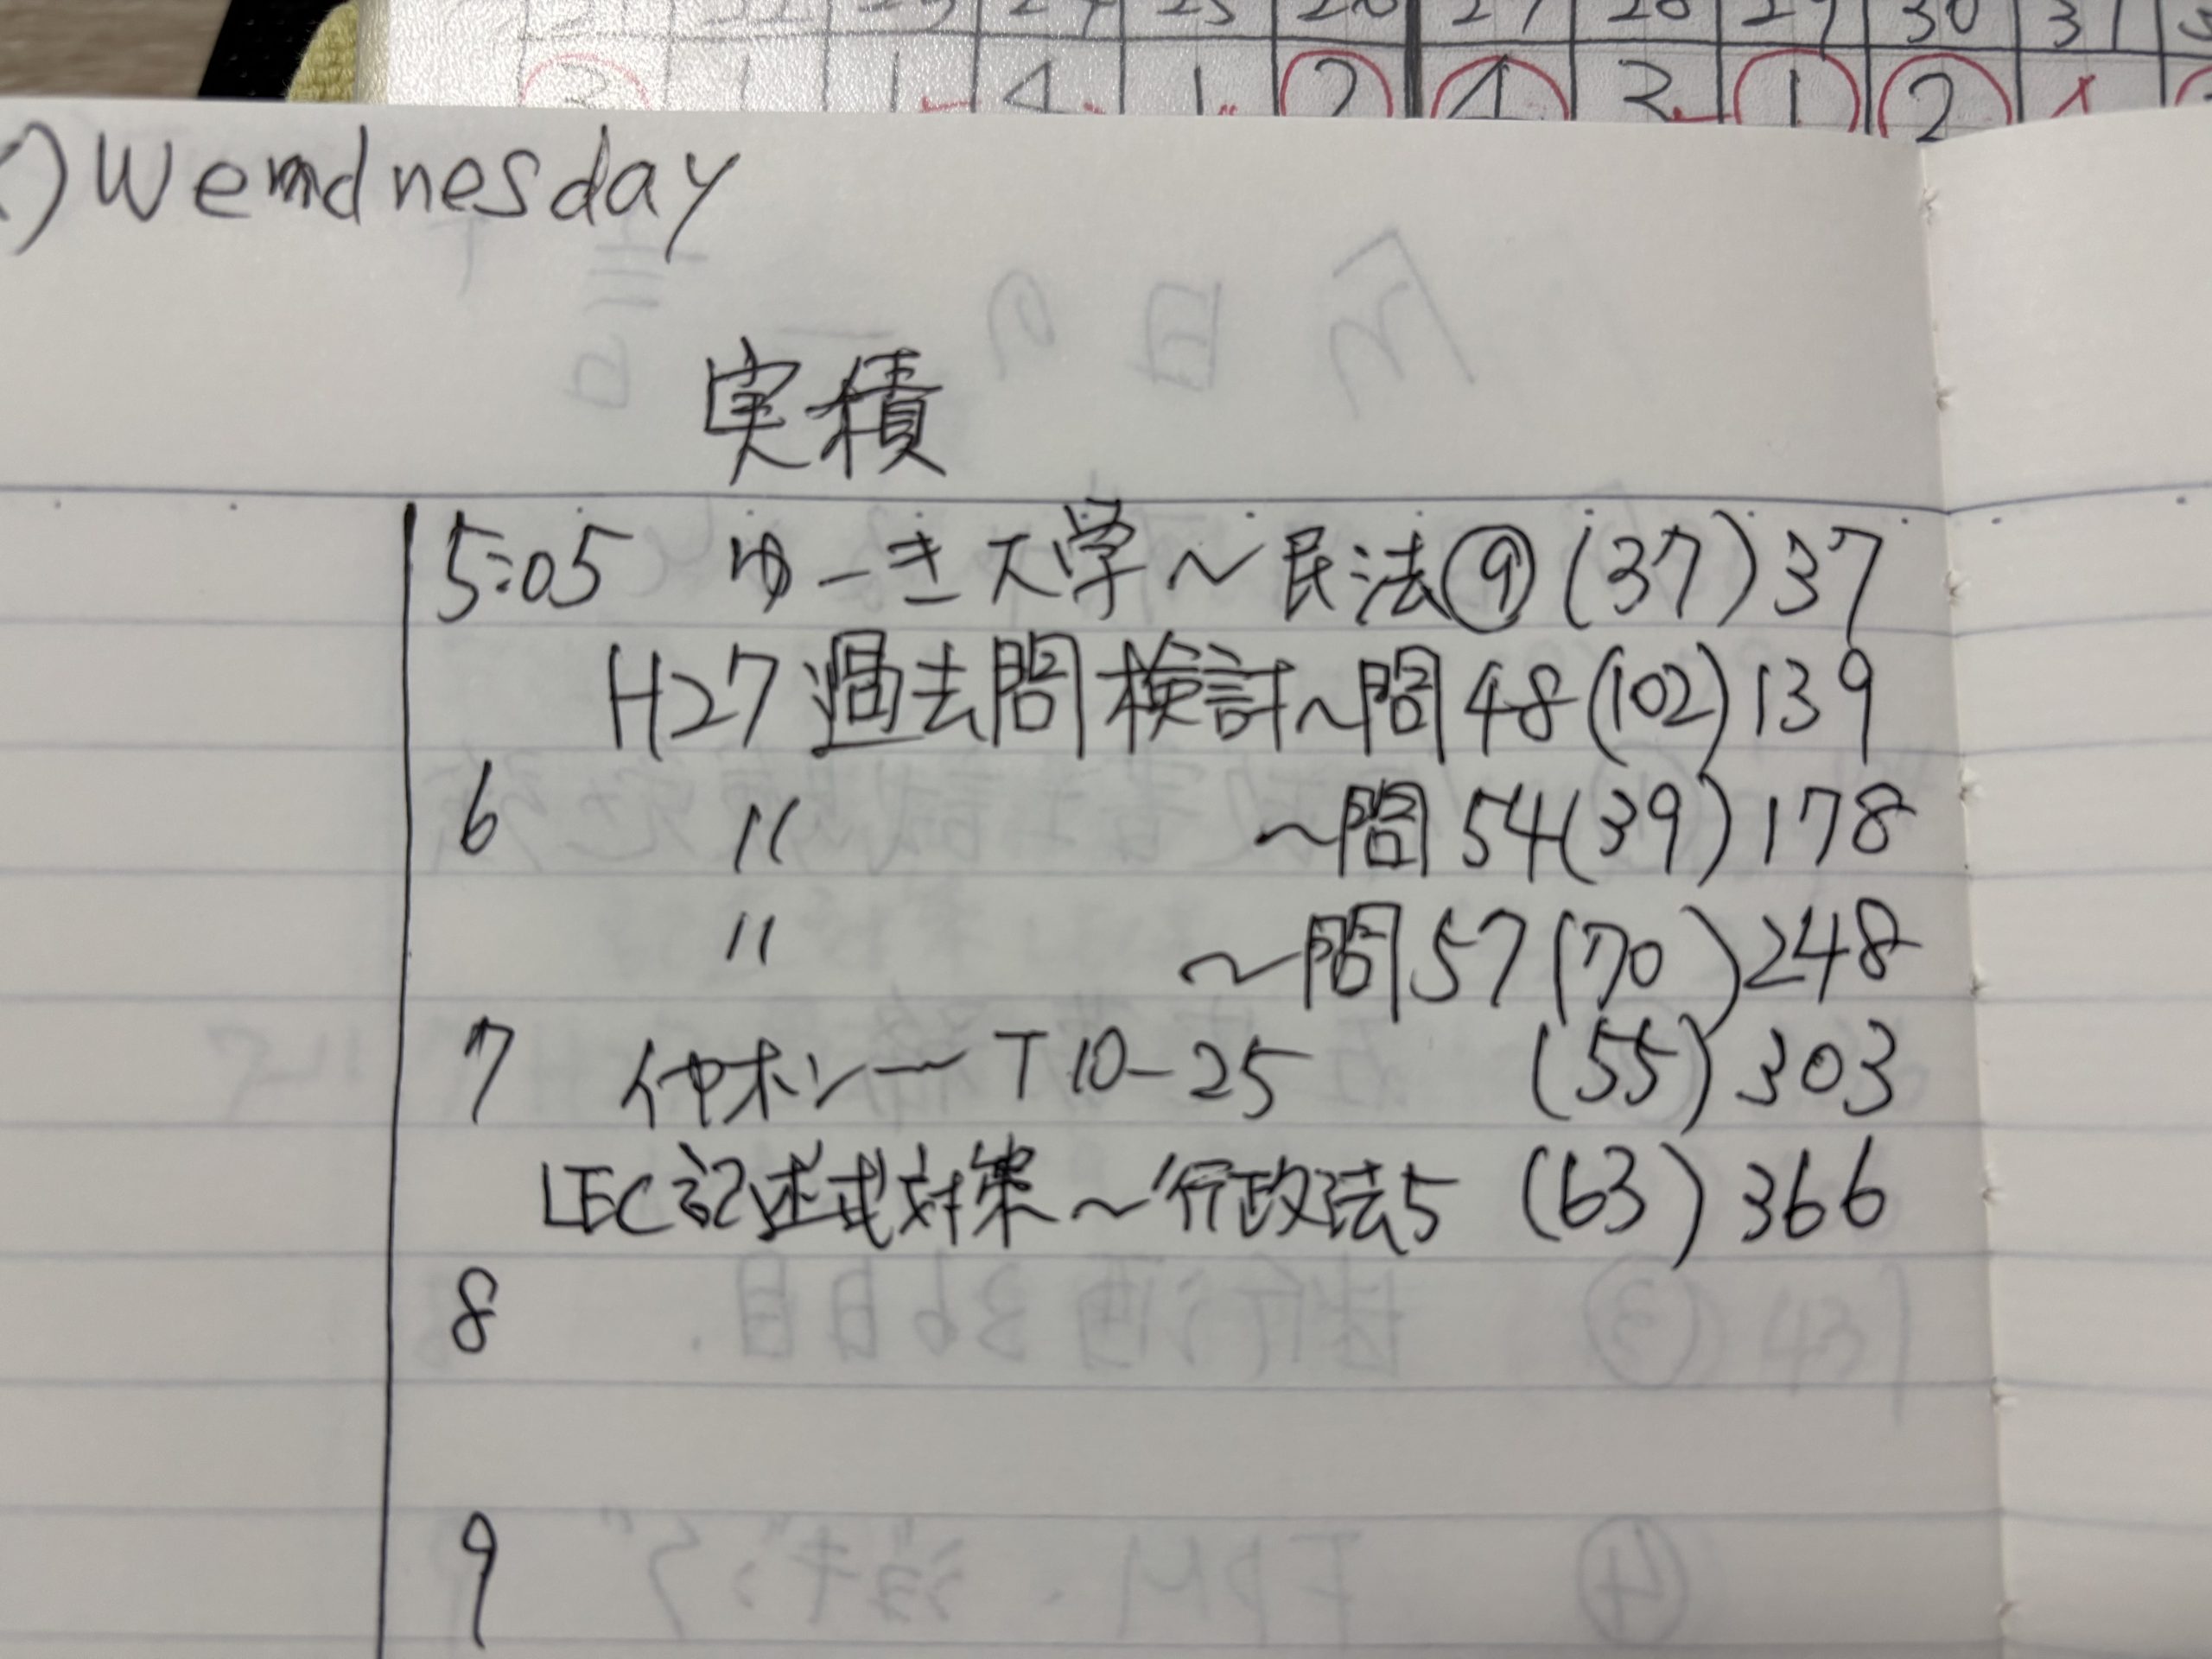 21 22 23 24 25 26 27 28 29 30 31
3 1 1 4 1 2 1 2 1 2
) Wemdnesday
実積
5:05 ゆーき大学～民法⑨ (37) 37
H27 過去問検討～問48 (102) 139
6 〃 ～問54 (39) 178
〃 ～問57 (70) 248
7 イヤホン― T10-25 (55) 303
LEC記述式対策～行政法5 (63) 366
8
9